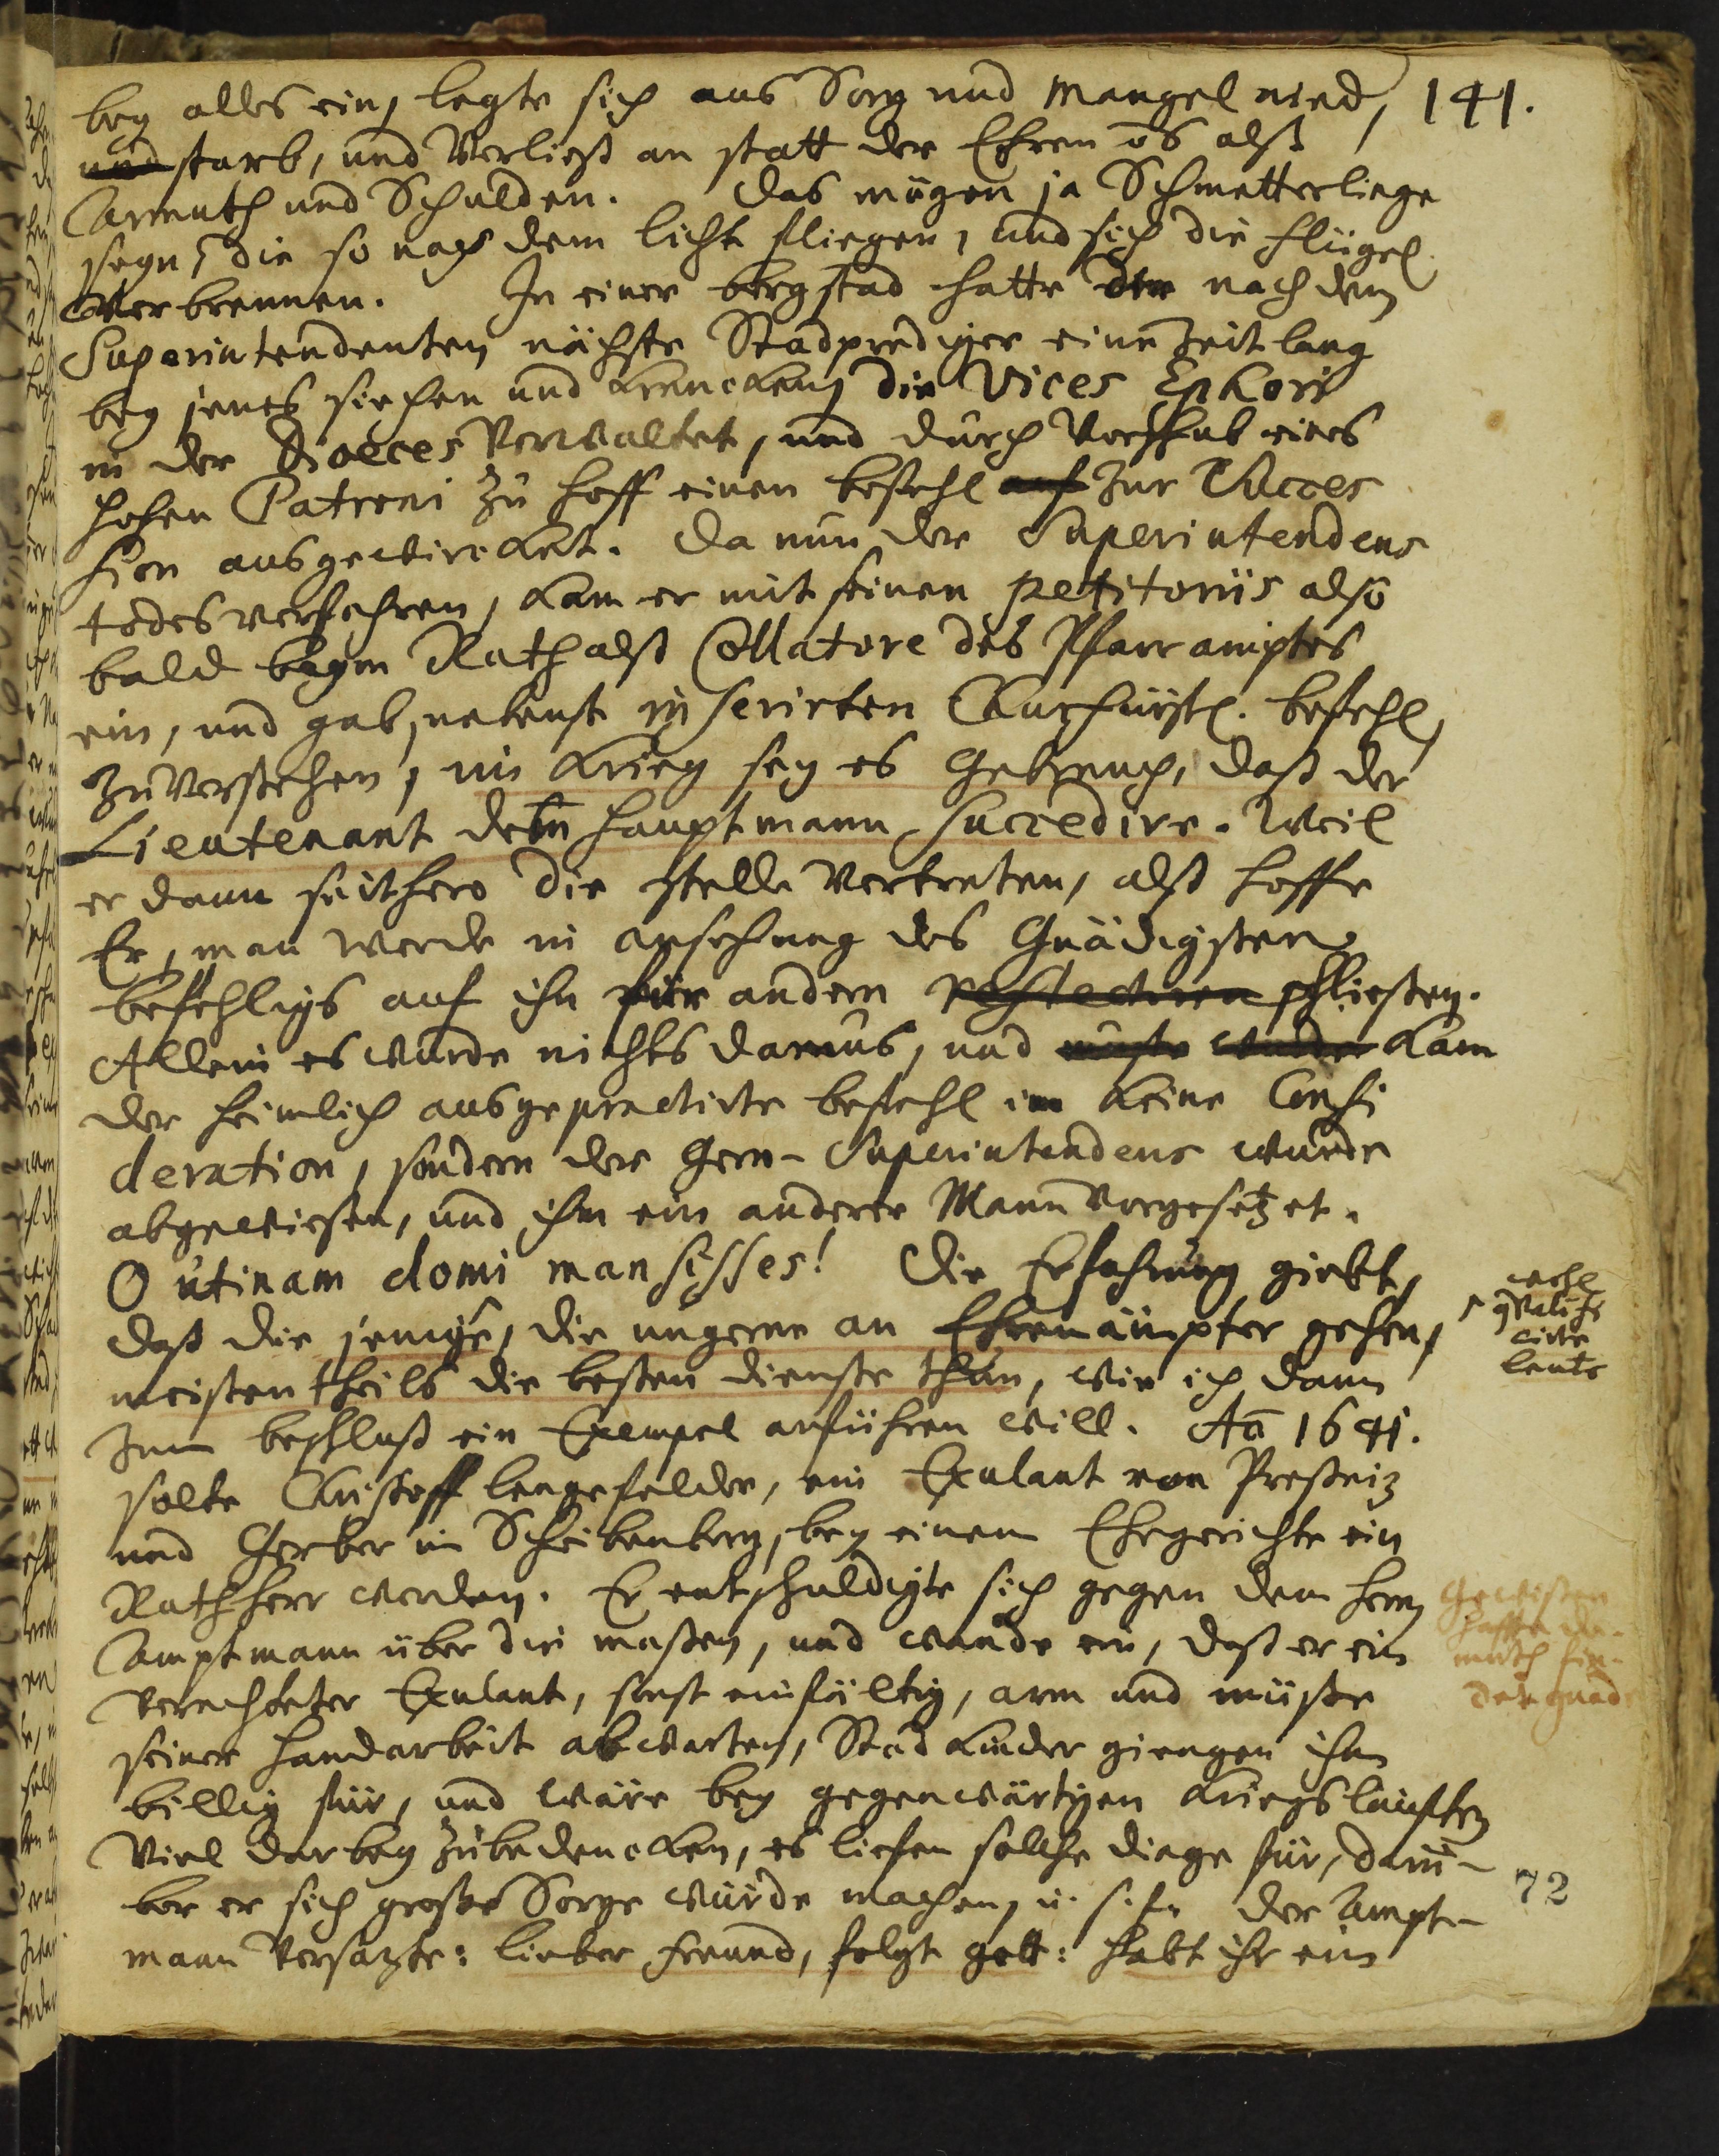 141.
bey alles ein, legte sich aus Sorg und Mangel nied,
und starb, und Verließ an statt der Ehren alß
Armuth und Schulden. Das mögen ja Schmetterlinge
seyn, die so nach dem licht fliegen, und sich die flügel
Verbrennen. In einer bergstad hatte der nach dem
Superintendenten nächste Stadprediger eine Zeit lang
bey jenes siechen und krancken, die Vices Ephori
in der Dioeces Verwaltet, und durch Vorschub eines
hohen Patroni zu hoff einen befehl auf zur Succes
sion ausgewircket. Da nun der Superintendens
todes verfahren, kam er mit seinen petitoriis also
bald beym Rath alß Collatore des Pfarramptes
ein, und gab, nebenst inserirten Churfürstl. befehl,
zu Verstehen, im Krieg sey es Gebrauch, daß der
Lieutenant dem haupt mann succedire. Weil
er dann seithero die stelle Vertreten, alß hoffe
Er, man werde in ansehung des Gnädigsten
befehligs auf ihn für andern reflectiren schließen.
Allein es wurde nichts daraus, und muste wieder kam
der heimlich ausgepracticirte befehl in keine Consi
deration, sondern der Gern-Superintendens wurde
abgewiesen, und ihm ein anderer Mann Vorgesetzet.
O utinam domi mansisses! Die Erfahrung giebt,
daß die jenige, die ungerne an Ehrenämpter gehen,
wohl
qvalifi
cirte
leute
meistentheils die besten dienste thun, wie ich dann
zum beschluß ein Exempel anführen will. Aō 1641.
solte Christoff lengefelder, ein Exulant von Preßnitz
und Gerber in Scheibenberg, bey einem Ehegerichte ein
Rathherr werden. Er entschuldigte sich gegen dem herrn
Amptmann über die maßen, und wande ein, daß er ein
Gewissen
haffte de-
muth fin-
det gnad
Verachteter Exulant, sonst einfältig, arm und müste
seiner handarbeit abwarten, Stadkinder giengen ihm
billig für, und wäre bey gegenwärtigen Kriegsläufften
Viel darbey zubedencken, es liefen solche dinge für, darü-
72
ber er sich große Sorge würde machen, u. s. f. Der Ampt-
mann Versatzte: lieber freund, folgt gott: habt ihr ein